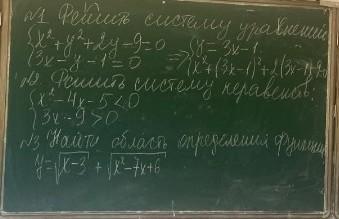 №1 Решить систему уравнений
{x²+y²+2y-9=0
{3x-y-1=0
⇒ {y=3x-1
{x²+(3x-1)²+2(3x-1)-9=0
№2 Решить систему неравенств:
{x²-4x-5<0
{3x-9>0
№3 Найти область определения функции
y=√x-3 + √x²-7x+6